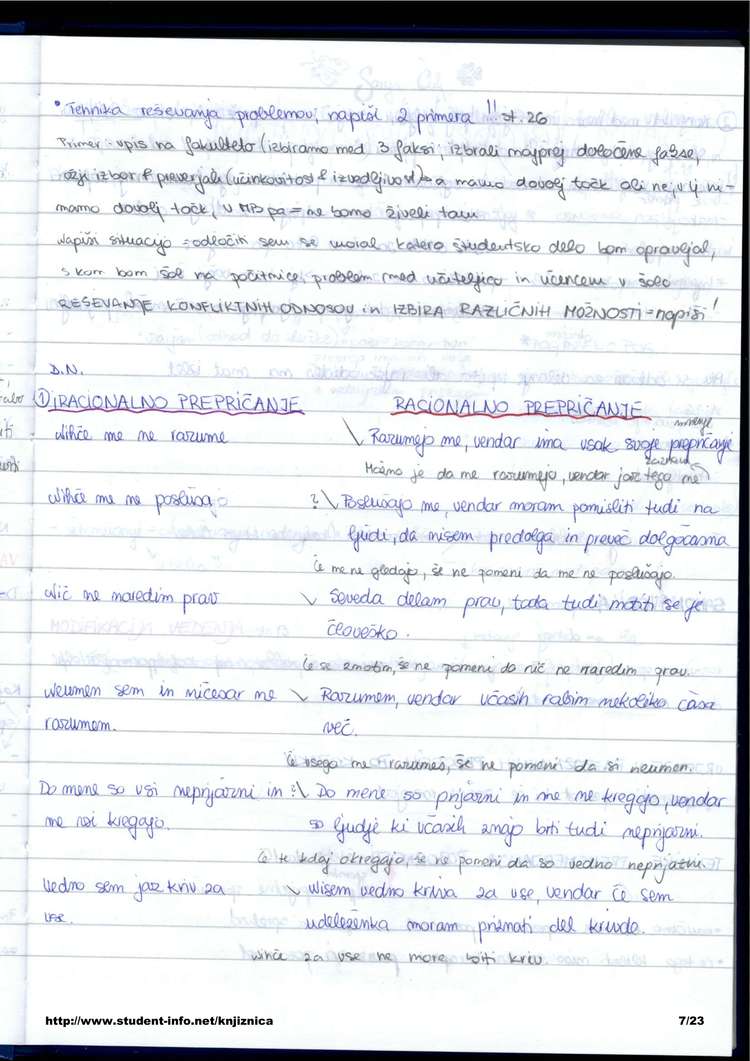 • Tehnika reševanja problemov, napiši 2 primera !! st. 26
Primer: vpis na fakulteto (izbiramo med 3 faksi, izbrali najprej določene fakse,
ožji izbor & preverjali (učinkovitost & izvedljivost) → a mamo dovolj točk ali ne, v lj ni-
mamo dovolj točk, v MB pa = ne bomo živeli tam
Napiši situacijo = odločiti sem se moral katero študentsko delo bom opravljal,
s kom bom šel na počitnice, problem med učiteljico in učencem v šoli
REŠEVANJE KONFLIKTNIH ODNOSOV in IZBIRA RAZLIČNIH MOŽNOSTI = napiši!
D.N.
① IRACIONALNO PREPRIČANJE RACIONALNO PREPRIČANJE
mnenje
Nihče me ne razume \ Razumejo me, vendar ima vsak svoje prepričanje
Možno je da me razumejo, vendar jaz tega ne
Nihče me ne posluša ? \ Poslušajo me, vendar moram pomisliti tudi na
ljudi, da nisem predolga in preveč dolgočasna
Če me ne gledajo, še ne pomeni da me ne poslušajo.
Nič ne naredim prav \ Seveda delam prav, toda tudi motiti se je
človeško.
Če se zmotim, še ne pomeni da nič ne naredim prav.
Neumen sem in ničesar ne \ Razumem, vendar včasih rabim nekoliko časa
razumem. več.
Če vsega ne razumeš, še ne pomeni da si neumen.
Do mene so vsi neprijazni in ? \ Do mene so prijazni in me ne kregajo, vendar
me vsi kregajo. so ljudje ki včasih znajo biti tudi neprijazni.
Če te kdaj okregajo, še ne pomeni da so vedno neprijazni.
Vedno sem jaz kriv za \ Nisem vedno kriva za vse, vendar če sem
vse. udeleženka moram priznati del krivde.
Nihče za vse ne more biti kriv.
http://www.student-info.net/knjiznica 7/23